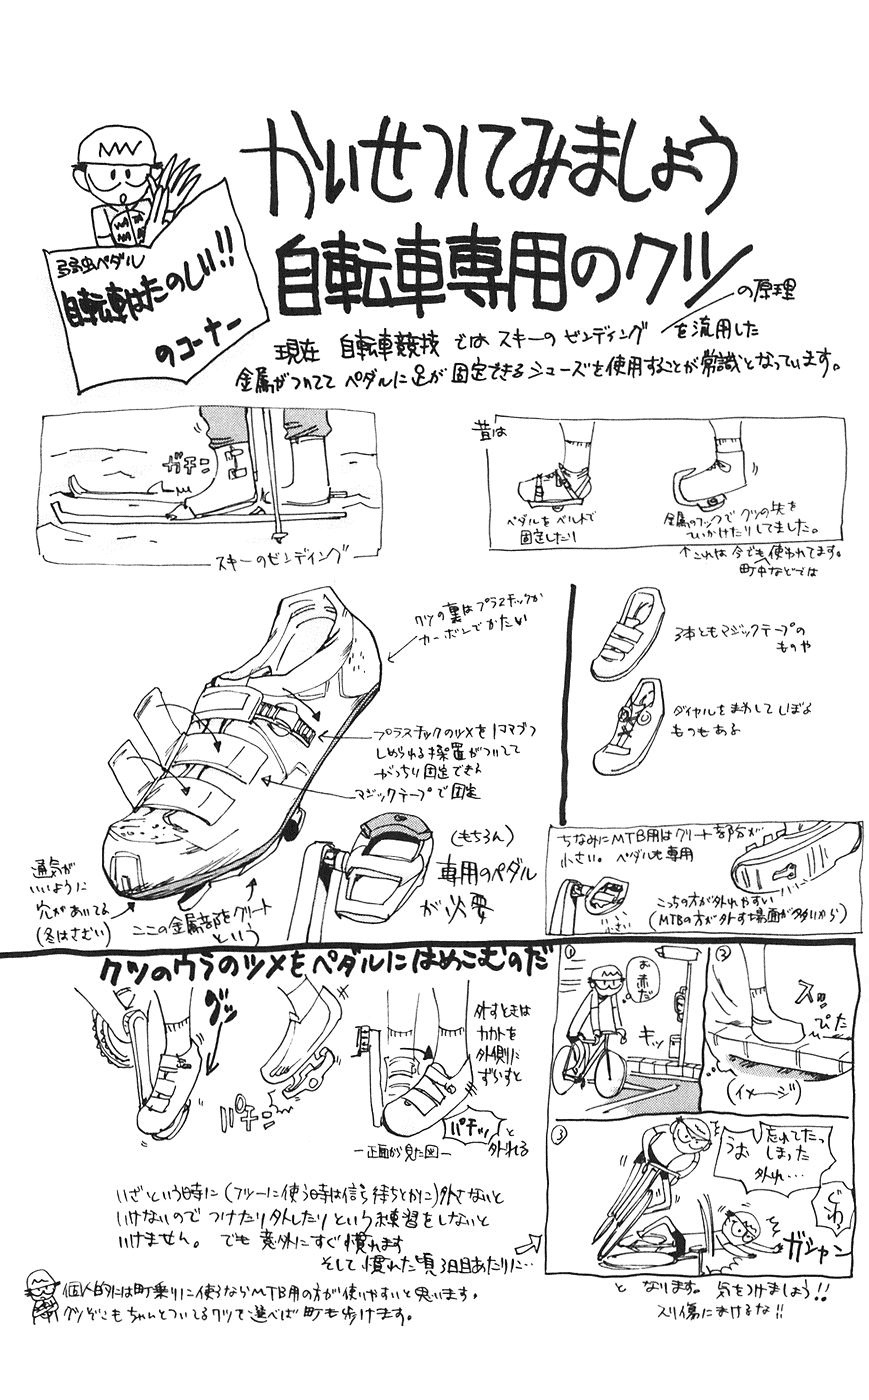 かいせつしてみましょう
自転車専用のクツ
の原理
弱虫ペダル
自転車はたのしい!!
のコーナー
現在 自転車競技 では スキーの ビンディング を流用した
金属がついてて ペダルに足が 固定できるシューズを使用することが常識となっています。
ガチン
スキーのビンディング
昔は
ペダルを ベルトで
固定したり
金属のフックで クツの先を
ひっかけたりしてました。
↑これは 今でも使われてます。
町中などでは
クツの裏はプラスチックか
カーボンでかたい
プラスチックのツメを1コマづつ
しめられる装置がついてて
がっちり固定できる
マジックテープで固定
3本ともマジックテープの
ものや
ダイヤルをまわしてしぼる
ものもある
通気が
いいように
穴があいてる
(冬はさむい)
ここの金属部をクリート
という
(もちろん)
専用のペダル
が必要
ちなみにMTB用はクリート部分が
小さい。 ペダルも専用
小さい
こっちの方が外れやすい
(MTBの方が外す場面が多いから)
クツのウラのツメをペダルにはめこむのだ
グッ
パチン
外すときは
カカトを
外側に
ずらすと
パチッ
と
外れる
ー正面から見た図ー
①
お
赤だ
キッ
②
スッ
ぴた
(イメージ)
③
うお
忘れてたっ
しまった
外れ…
ぐわっ
ガシャン
いざという時に(フツーに使う時は信号待ちとかに)外さないと
いけないので つけたり外したりという練習をしないと
いけません。 でも 意外にすぐ慣れます
そして 慣れた頃 3日目あたりに…
と なります。 気をつけましょう!!
スリ傷にまけるな!!
個人的には町乗りに使うならMTB用の方が使いやすいと思います。
クツぞこもちゃんとついてるクツを選べば 町も歩けます。